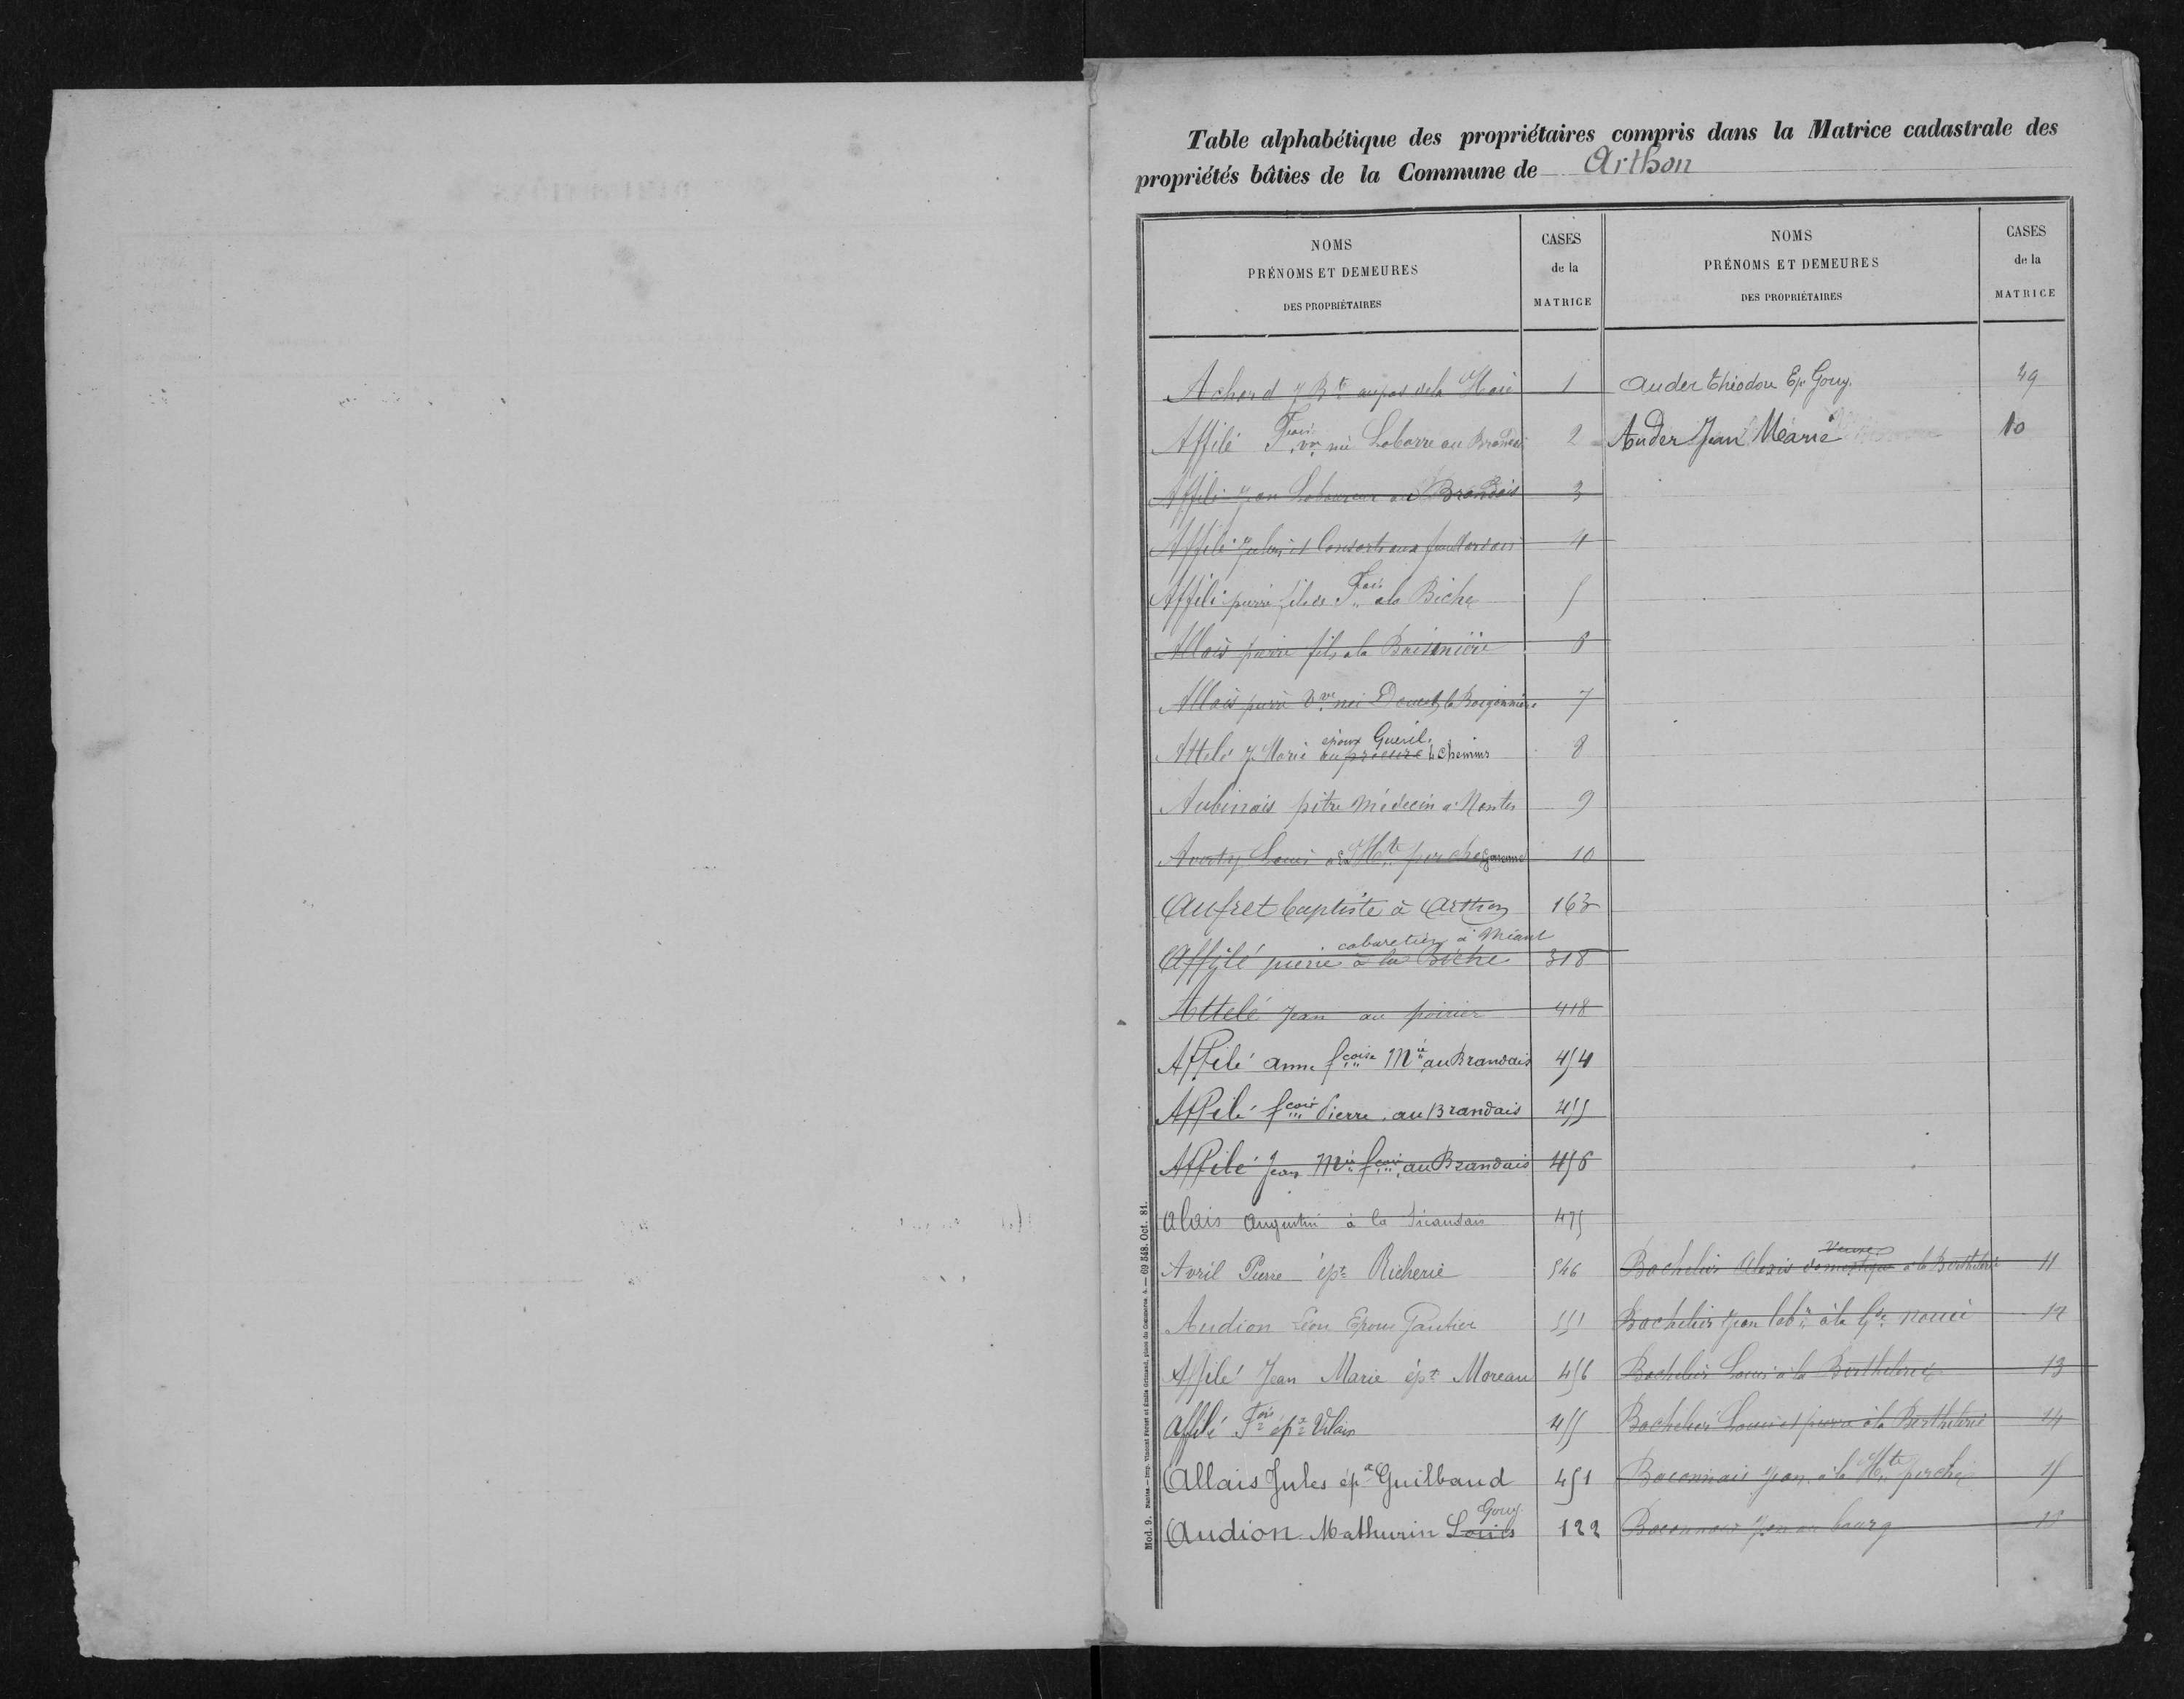 Table alphabétique des propriétaires compris dans la Matrice cadastrale des
propriétés bâties de la Commune de Arthon
NOMS
PRÉNOMS ET DEMEURES
DES PROPRIÉTAIRES
CASES
de la
MATRICE
Achard J Bte au pas de la Haie 1
Affilé Fçois vve née Labarre au Brandais 2
Affilé Jean Laboureur au Brandais 3
Affilé Julien et Consorts aux 4
Affilé pierre fils de Fçois à la Biche 5
Allais pierre fils à la 6
Allais pierre Vve née la 7
époux Gueril
Attelé J. Marie 4 Chemins 8
Aubinais pitre Médecin à Nantes 9
Averty Louis à la Hte perche 10
Aufret baptiste à Arthon 163
cabaretier à Méant
Affilé pierre à la Biche 318
Attelé Jean au poirier 418
Affilé Anne fçoise Mie au Brandais 454
Affilé fçois Pierre au Brandais 455
Affilé Jean Mie fçois au Brandais 456
Alais Augustin à la Sicaudais 475
Avril Pierre épx Richerie 546
Audion Léon Epoux Gautier 551
Affilé Jean Marie épx Moreau 456
Affilé Fois épx Vilain 455
Allais Jules épx Guilbaud 451
Gouy
Audion Mathurin Louis 122
NOMS
PRÉNOMS ET DEMEURES
DES PROPRIÉTAIRES
CASES
de la
MATRICE
Auder théodore Ep Gouy. 49
Auder Jean Marie 10
veuve
Bachelier Alexis domestique à la Berthelerie 11
Bachelier Jean labr à la Gde noue 12
Bachelier Louis à la Berthelerie 13
Bachelier Louis et pierre à la Berthelerie 14
Baconnais Jean à la Hte perche 15
Baconnais Jean au bourg 16
Mod. 9. Nantes.— Imp. Vincent Forest et Émile Grimaud, place du Commerce, 4.— 69 348. Oct. 81.